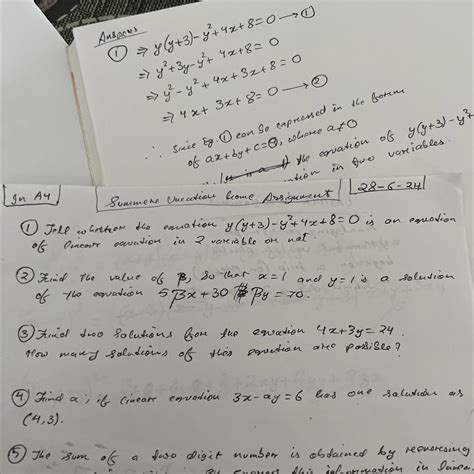 Answers
① ⇒ y(y+3)-y²+4x+8=0 → ①
⇒ y²+3y-y²+4x+8=0
⇒ y²-y²+4x+3x+8=0
⇒ 4x+3x+8=0 → ②
∴ Since Eq. ① can be expressed in the form
of ax+by+c=0, where a≠0
the equation of y(y+3)-y²+
in two variables.
In A4
Summer Vacation home Assignment
28-6-24
① Tell whether the equation y(y+3)-y²+4x+8=0 is an equation
of linear equation in 2 variable or not.
② Find the value of β, so that x=1 and y=1 is a solution
of the equation 5βx+30βy=70.
③ Find two solutions for the equation 4x+3y=24.
How many solutions of this equation are possible?
④ Find a; if linear equation 3x-ay=6 has one solution as
(4,3).
⑤ The sum of a two digit number is obtained by
this information in linear